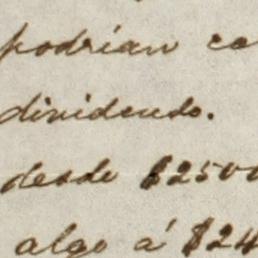 podrían co
dividendo.
desde $2500
algo á $24